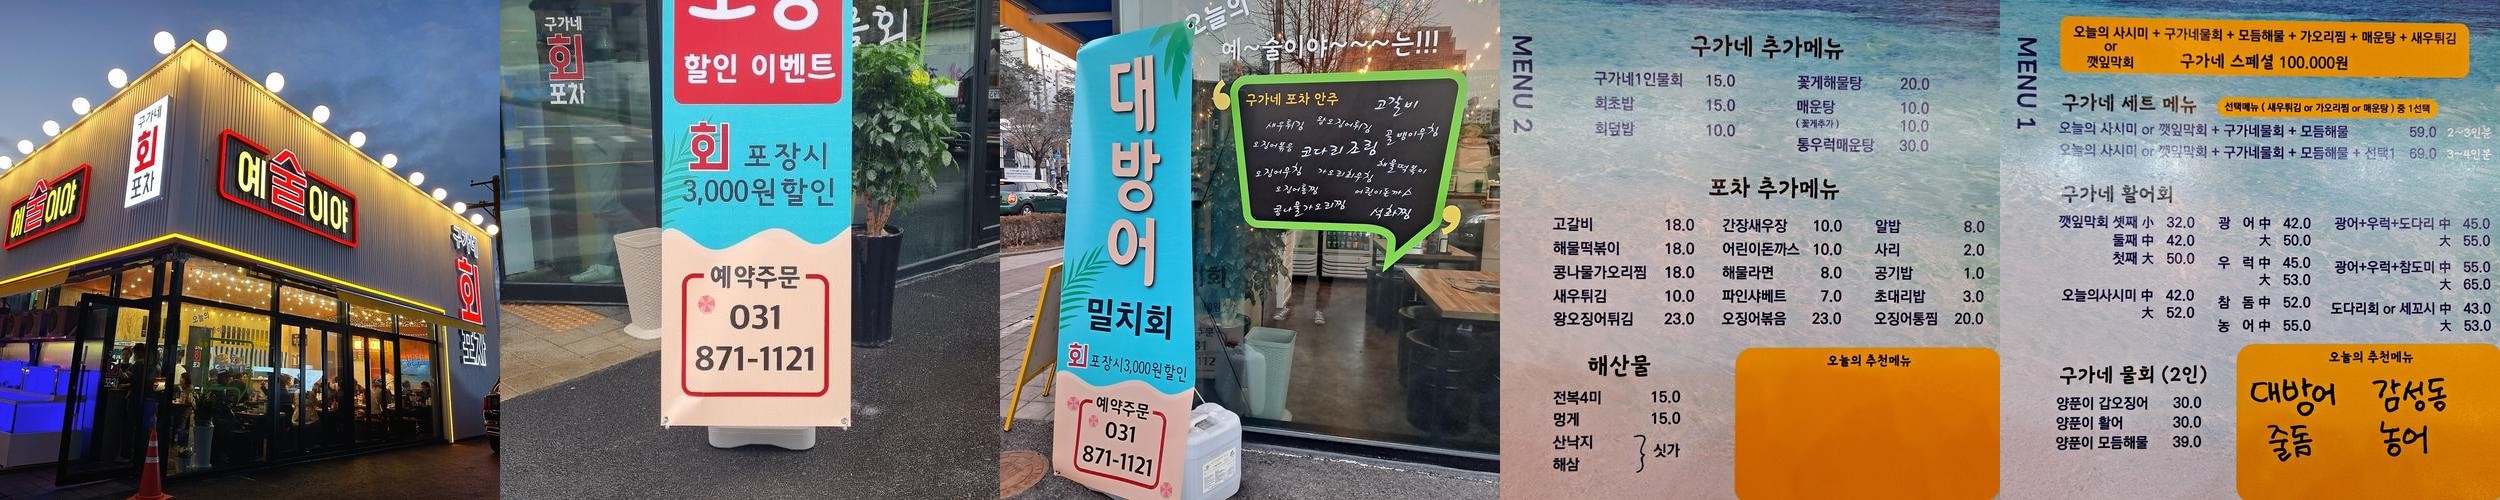 구가네
회
포차
예술이야
예술이야
구가네
회
포차
구가네
회
포차
포장
할인 이벤트
회 포장시
3,000원할인
예약주문
031
871-1121
오늘의
예~술이야~~~는!!!
대방어
밀치회
회 포장시3,000원할인
예약주문
031
871-1121
구가네 포차 안주
고갈비
새우튀김 왕오징어튀김
골뱅이무침
오징어볶음 코다리조림
해물떡볶이
오징어무침 가오리회무침
오징어통찜 어린이돈까스
콩나물가오리찜 석화찜
MENU 2
구가네 추가메뉴
구가네1인물회 15.0
회초밥 15.0
회덮밥 10.0
꽃게해물탕 20.0
매운탕 10.0
(꽃게추가) 10.0
통우럭매운탕 30.0
포차 추가메뉴
고갈비 18.0 간장새우장 10.0 알밥 8.0
해물떡볶이 18.0 어린이돈까스 10.0 사리 2.0
콩나물가오리찜 18.0 해물라면 8.0 공기밥 1.0
새우튀김 10.0 파인샤베트 7.0 초대리밥 3.0
왕오징어튀김 23.0 오징어볶음 23.0 오징어통찜 20.0
해산물
전복4미 15.0
멍게 15.0
산낙지
해삼
싯가
오늘의 추천메뉴
MENU 1
오늘의 사시미 + 구가네물회 + 모듬해물 + 가오리찜 + 매운탕 + 새우튀김
or
깻잎막회 구가네 스페셜 100.000원
구가네 세트 메뉴 선택메뉴 ( 새우튀김 or 가오리찜 or 매운탕 ) 중 1선택
오늘의 사시미 or 깻잎막회 + 구가네물회 + 모듬해물 59.0 2~3인분
오늘의 사시미 or 깻잎막회 + 구가네물회 + 모듬해물 + 선택1 69.0 3~4인분
구가네 활어회
깻잎막회 셋째 小 32.0
둘째 中 42.0
첫째 大 50.0
오늘의사시미 中 42.0
大 52.0
광 어 中 42.0
大 50.0
우 럭 中 45.0
大 53.0
참 돔 中 52.0
농 어 中 55.0
광어+우럭+도다리 中 45.0
大 55.0
광어+우럭+참도미 中 55.0
大 65.0
도다리회 or 세꼬시 中 43.0
大 53.0
구가네 물회 (2인)
양푼이 갑오징어 30.0
양푼이 활어 30.0
양푼이 모듬해물 39.0
오늘의 추천메뉴
대방어 감성돔
줄돔 농어